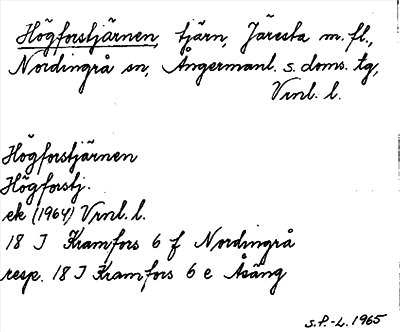 Högforstjärnen, tjärn, Järesta m.fl.,
Nordingrå sn, Ångermanl. s. doms. tg,
Vnl. l.
Högforstjärnen
Högforstj.
ek (1964) Vnl. l.
18 I Kramfors 6 f Nordingrå
resp. 18 I Kramfors 6 e Åsäng
S.P.-L. 1965